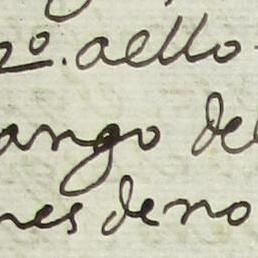 2º. aello
ango del
nes deno